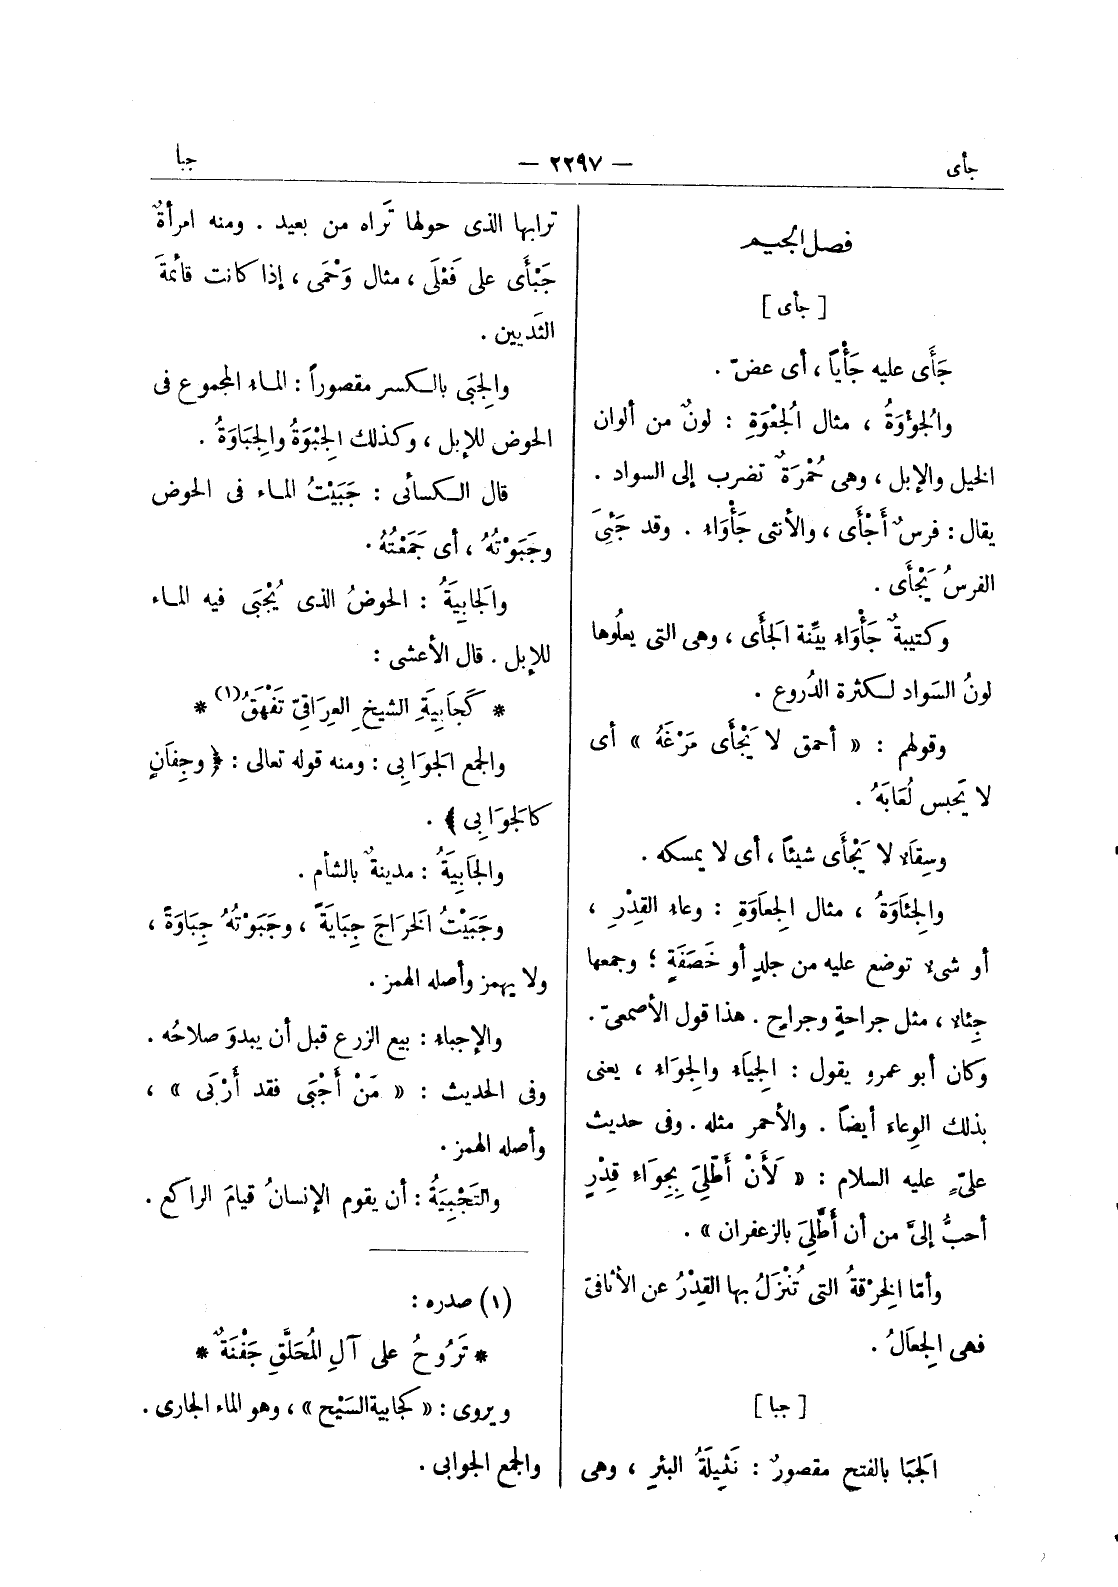 جأى
— ٢٢٩٧ —
جبا
فصل الجيم
[ جأى ]
جَأَى عليه جَأْياً ، أى عضّ .
والْجُؤْوَةُ ، مثال الْجُعْوَةِ : لونٌ من ألوان
الخيل والإبل ، وهى حُمْرَةٌ تضرب إلى السواد .
يقال : فرسٌ أَجْأَى ، والأنثى جَأْوَاءُ . وقد جَئِىَ
الفرسُ يَجْأَى .
وكتيبةٌ جَأْوَاءُ بيِّنة الجَأَى ، وهى التى يعلُوها
لونُ السَواد لكثرة الدُروع .
وقولهم : « أحمق لا يَجْأَى مَرْغَهُ » أى
لا يَحبس لُعَابَهُ .
وسِقَاء لا يَجْأَى شيئاً ، أى لا يمسكه .
والجِئَاوَةُ ، مثال الجِعَاوَةِ : وعاء القِدْرِ ،
أو شىء توضع عليه من جلدٍ أو خَصَفَةٍ ؛ وجمعها
جِئاء ، مثل جراحةٍ وجراحٍ . هذا قول الأصمعىّ .
وكان أبو عمرو يقول : الجِيَاء والجِوَاء ، يعنى
بذلك الوِعاء أيضاً . والأحمر مثله . وفى حديث
علىّ عليه السلام : « لَأَنْ أَطَّلِىَ بِجِوَاءِ قِدْرٍ
أحبُّ إلىَّ من أن أَطَّلِىَ بالزعفران » .
وأمّا الخِرْقةُ التى تُنْزَلُ بها القِدْرُ عن الأثافىّ
فهى الجِعَالُ .
[ جبا ]
الجَبَا بالفتح مقصورٌ : نَثِيلَةُ البئرِ ، وهى
ترابها الذى حولها تَراه من بعيد . ومنه امرأةٌ
جَبْأَى على فَعْلَى ، مثال وَحْمَى ، إذا كانت قائمةَ
الثَديين .
والجِبَى بالكسر مقصوراً : الماء المجموع فى
الحوض للإبل ، وكذلك الجِبْوَةُ والجِبَاوَةُ .
قال الكسائى : جَبَيْتُ الماء فى الحوض
وجَبَوْتُهُ ، أى جَمَعْتُهُ .
والجَابِيَةُ : الحوضُ الذى يُجْبَى فيه الماء
للإبل . قال الأعشى :
* كَجَابِيَةِ الشيخِ العِرَاقِىِّ تَفْهَقُ (١) *
والجمع الجَوَابِى : ومنه قوله تعالى : ﴿ وجِفَانٍ
كالجَوَابِى ﴾ .
والجَابِيَةُ : مدينةٌ بالشأم .
وجَبَيْتُ الخَرَاجَ جِبَايَةً ، وجَبَوْتُهُ جِبَاوَةً ،
ولا يهمز وأصله الهمز .
والإجباء : بيع الزرع قبل أن يبدوَ صلاحُه .
وفى الحديث : « مَنْ أَجْبَى فقد أَرْبَى » ،
وأصله الهمز .
والتَجْبِيَةُ : أن يقوم الإنسانُ قيامَ الراكع .
(١) صدره :
* تَرُوحُ على آلِ المُحَلَّقِ جَفْنَةٌ *
ويروى : « كجابية السَيْح » ، وهو الماء الجارى .
والجمع الجوابى .